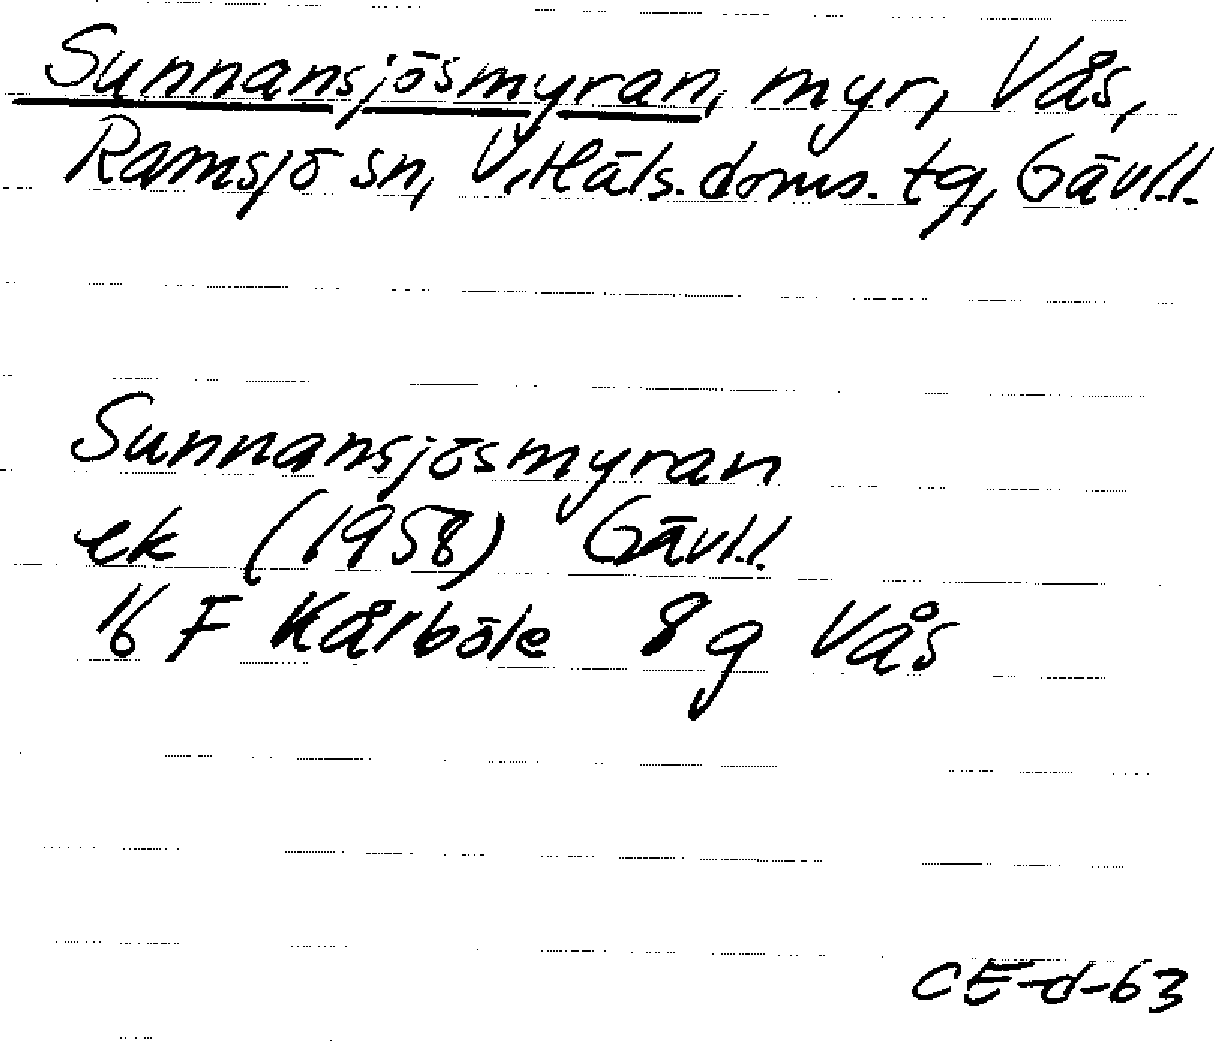 Sunnansjösmyran, myr, Vås,
Ramsjö sn, V. Häls. doms. tg, Gävl.l.
Sunnansjösmyran
ek (1958) Gävl.l.
16 F Kårböle 8 g Vås
CE-d-63